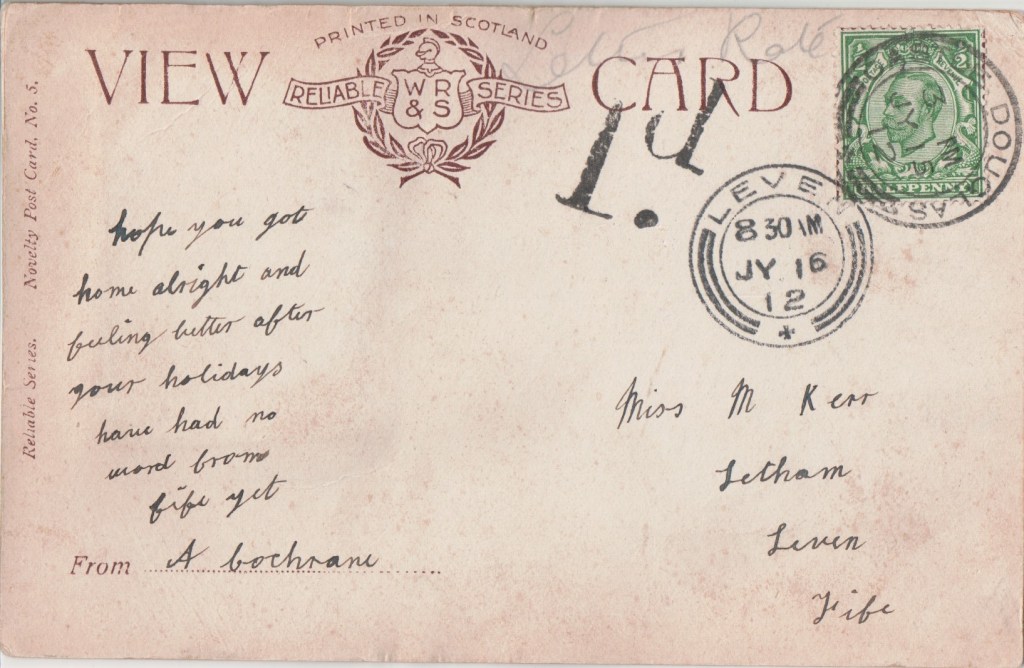 PRINTED IN SCOTLAND
VIEW CARD
RELIABLE WR & S SERIES
Letter Rate
1d.
HALFPENNY
DOUGLAS
LEVEN
8 30 AM
JY 16
12
Reliable Series. Novelty Post Card. No. 5.
hope you got
home alright and
feeling better after
your holidays
have had no
word from
fife yet
From A Cochrane
Miss M Kerr
Letham
Leven
Fife